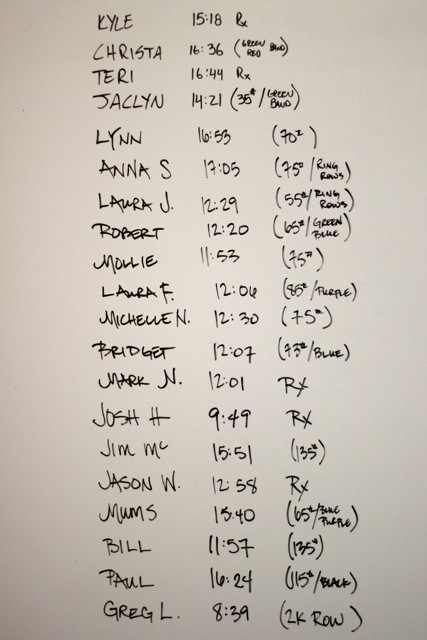 KYLE 15:18 Rx
CHRISTA 16:36 (GREEN RED BAND)
TERI 16:44 Rx
JACLYN 14:21 (35#/GREEN BAND)
LYNN 16:53 (70#)
ANNA S 17:05 (75#/RING ROWS)
LAURA J. 12:29 (55#/RING ROWS)
ROBERT 12:20 (65#/GREEN BLUE)
MOLLIE 11:53 (75#)
LAURA F. 12:06 (85#/PURPLE)
MICHELLE N. 12:30 (75#)
BRIDGET 12:07 (73#/BLUE)
MARK N. 12:01 RX
JOSH H 9:49 RX
JIM MC 15:51 (135#)
JASON W. 12:58 Rx
MUMS 15:40 (65#/BLUE PURPLE)
BILL 11:57 (135#)
PAUL 16:24 (115#/BLACK)
GREG L. 8:39 (2K ROW)